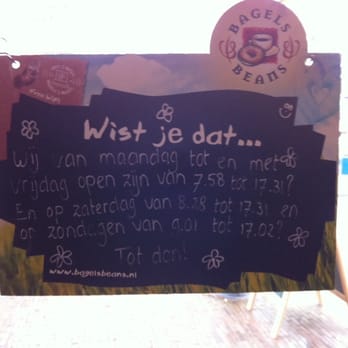 BAGELS
BEANS
Wist je dat...
Wij van maandag tot en met
vrijdag open zijn van 7.58 tot 17.31?
En op zaterdag van 8.28 tot 17.31 en
op zondagen van 9.01 tot 17.02?
Tot dan!
www.bagelsbeans.nl